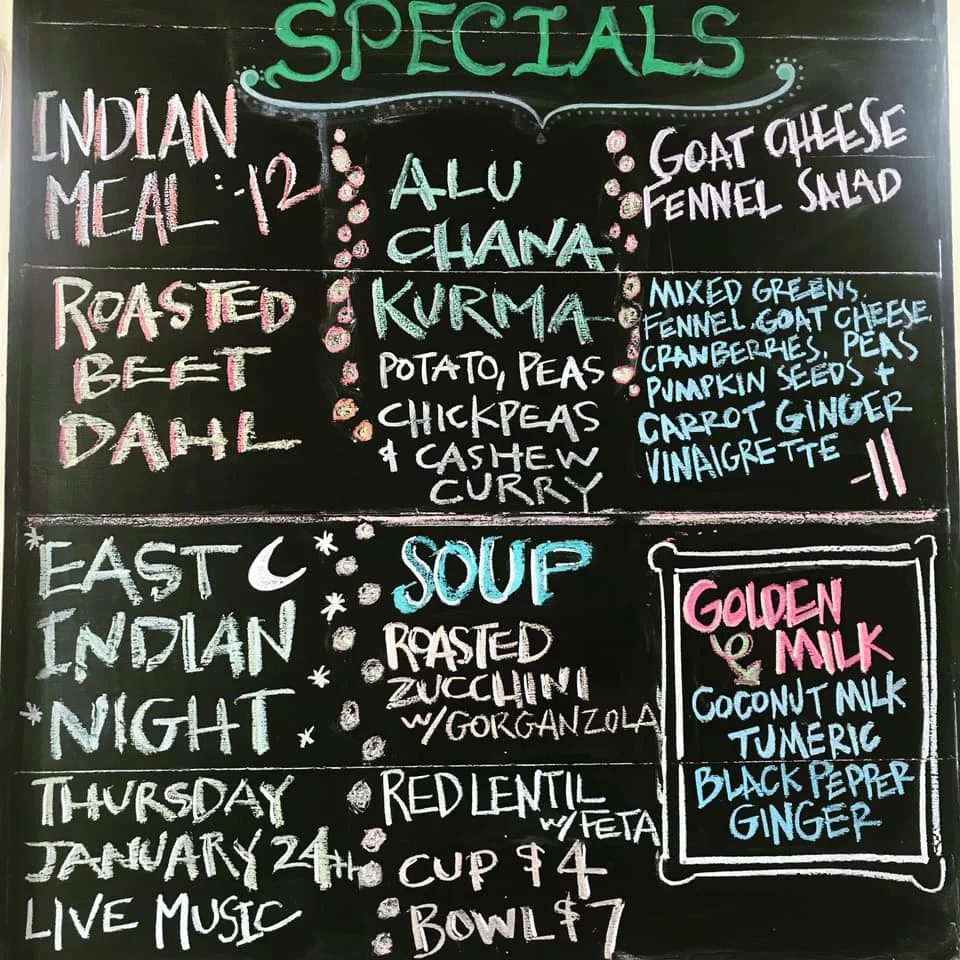 SPECIALS
INDIAN
MEAL :-12
ROASTED
BEET
DAHL
ALU
CHANA
KURMA
POTATO, PEAS
CHICKPEAS
& CASHEW
CURRY
GOAT CHEESE
FENNEL SALAD
MIXED GREENS,
FENNEL, GOAT CHEESE
CRANBERRIES, PEAS
PUMPKIN SEEDS +
CARROT GINGER
VINAIGRETTE
-11
EAST
INDIAN
NIGHT
THURSDAY
JANUARY 24TH
LIVE MUSIC
SOUP
ROASTED
ZUCCHINI
W/GORGANZOLA
RED LENTIL
W/FETA
CUP $4
BOWL $7
GOLDEN
MILK
COCONUT MILK
TUMERIC
BLACK PEPPER
GINGER